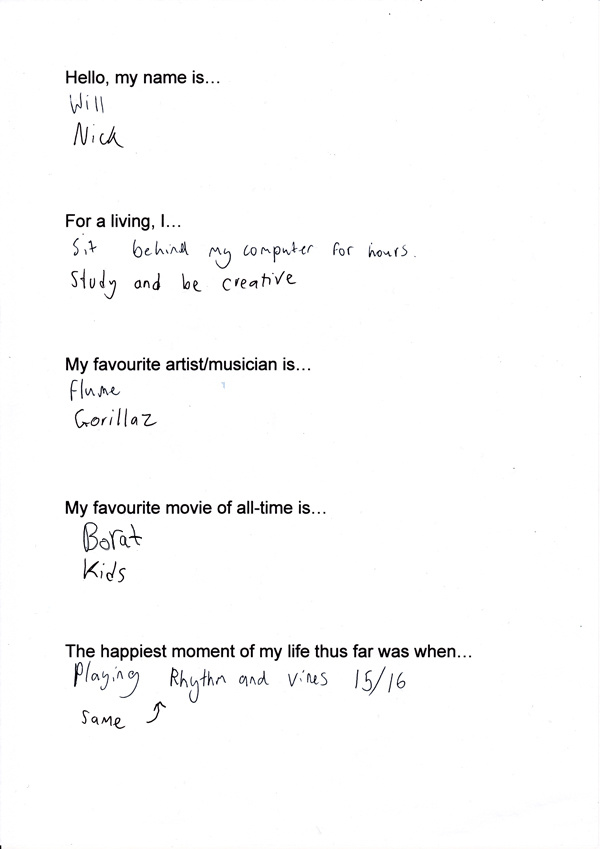 Hello, my name is...
Will
Nick
For a living, I...
Sit behind my computer for hours.
Study and be creative
My favourite artist/musician is...
Flume
Gorillaz
My favourite movie of all-time is...
Borat
Kids
The happiest moment of my life thus far was when...
Playing Rhythm and Vines 15/16
same ⤴